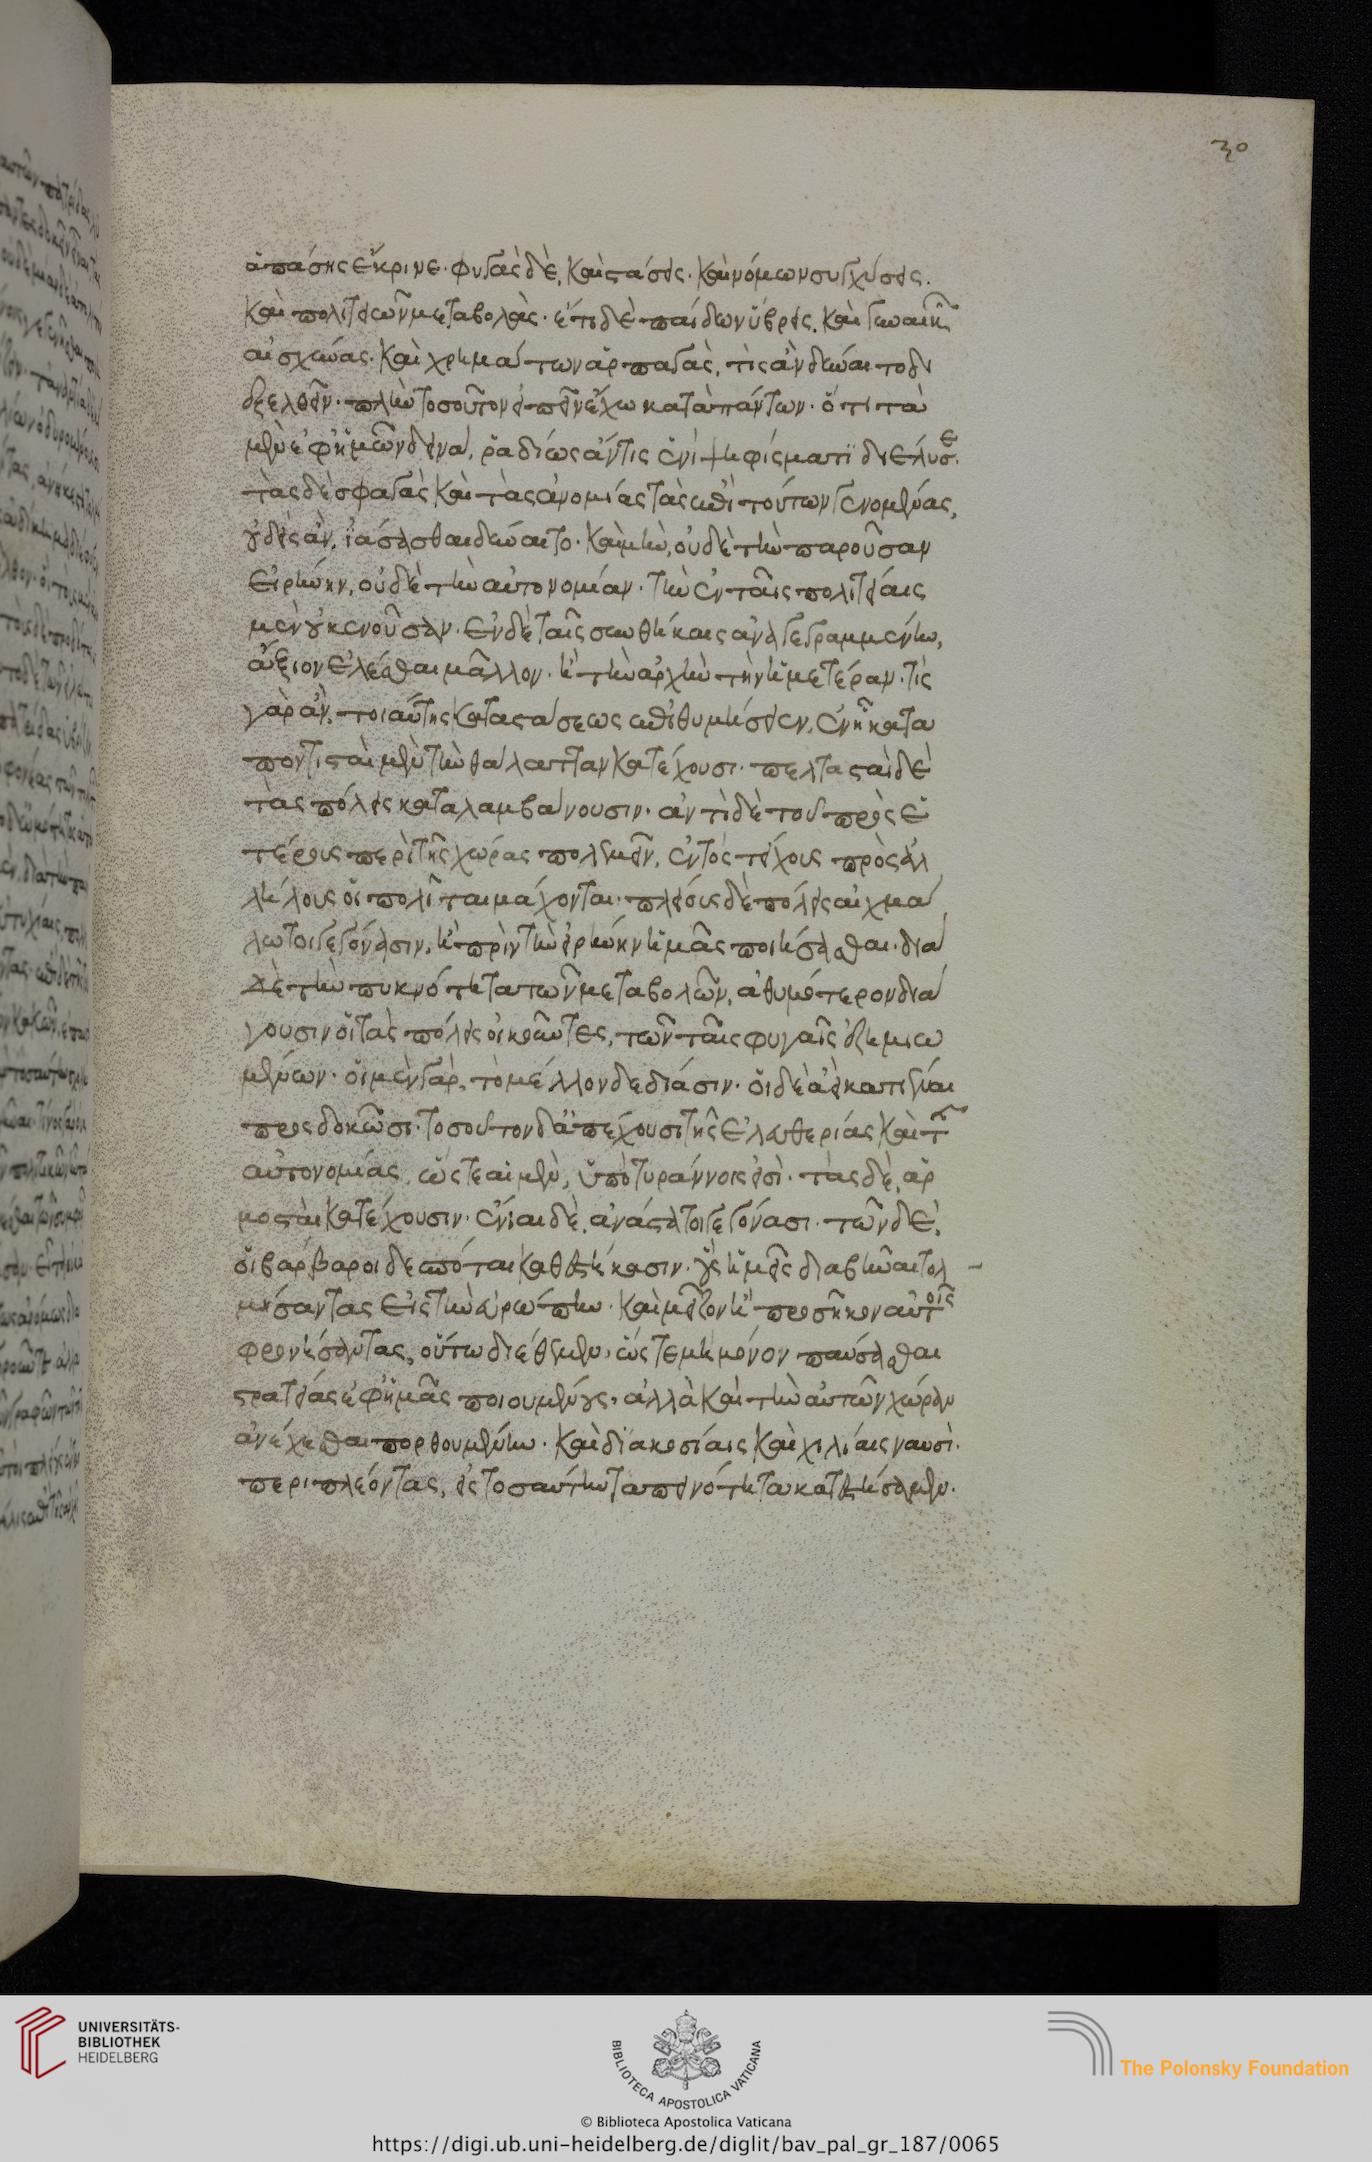 30
ἁπάσης ἔκρινε· φυγὰς δὲ, καὶ στάσεις· καὶ νόμων συγχύσεις.
καὶ πολιτειῶν μεταβολὰς· ἔτι δὲ παίδων ὕβρεις, καὶ γυναικῶν
αἰσχύνας· καὶ χρημάτων ἁρπαγὰς, τίς ἂν δύναιτο δι
εξελθεῖν· πλὴν τοσοῦτον εἰπεῖν ἔχω κατὰ πάντων· ὅτι τὰ
μὲν ἐφ ἡμῶν δεινὰ, ῥαδίως ἄν τις ἑνὶ ψηφίσματι διέλυσε.
τὰς δὲ σφαγὰς καὶ τὰς ἀνομίας τὰς ἐπὶ τούτων γενομένας,
οὐδεὶς ἂν, ἰάσασθαι δύναιτο· καὶ μὴν, οὐδὲ τὴν παροῦσαν
εἰρήνην, οὐδὲ τὴν αὐτονομίαν· τὴν ἐν ταῖς πολιτείαις
μὲν οὐκ ἐνοῦσαν· ἐν δὲ ταῖς συνθήκαις ἀναγεγραμμένην,
ἄξιον ἑλέσθαι μᾶλλον· ἢ τὴν ἀρχὴν τὴν ἡμετέραν· τίς
γὰρ ἂν, τοιαύτης καταστάσεως ἐπιθυμήσειεν, ἐν ᾗ κατα
ποντισταὶ μὲν τὴν θάλατταν κατέχουσι· πελτασταὶ δὲ
τὰς πόλεις καταλαμβάνουσιν· ἀντὶ δὲ τοῦ πρὸς ἑ
τέρους περὶ τῆς χώρας πολεμεῖν, ἐντὸς τείχους πρὸς ἀλ
λήλους οἱ πολῖται μάχονται· πλείους δὲ πόλεις αἰχμά
λωτοι γεγόνασιν, ἢ πρὶν τὴν εἰρήνην ἡμᾶς ποιήσασθαι· διὰ
δὲ τὴν πυκνότητα τῶν μεταβολῶν, ἀθυμότερον διά
γουσιν οἱ τὰς πόλεις οἰκοῦντες, τῶν ταῖς φυγαῖς ἐζημιω
μένων· οἱ μὲν γὰρ, τὸ μέλλον δεδίασιν· οἱ δὲ ἀεὶ κατιέναι
προσδοκῶσι· τοσοῦτον δ ἀπέχουσι τῆς ἐλευθερίας καὶ τῆς
αὐτονομίας, ὥστε αἱ μὲν, ὑπὸ τυράννοις εἰσὶ· τὰς δὲ, ἁρ
μοσταὶ κατέχουσιν· ἔνιαι δὲ, ἀνάστατοι γεγόνασι· τῶν δὲ,
οἱ βάρβαροι δεσπόται καθεστήκασιν· οὓς ἡμεῖς διαβῆναι τολ
μήσαντας εἰς τὴν εὐρώπην· καὶ μεῖζον ἢ προσῆκον αὐτοῖς
φρονήσαντας, οὕτω διέθεμεν, ὥστε μὴ μόνον παύσασθαι
στρατείας ἐφ ἡμᾶς ποιουμένους, ἀλλὰ καὶ τὴν αὑτῶν χώραν
ἀνέχεσθαι πορθουμένην· καὶ διακοσίαις καὶ χιλίαις ναυσὶ.
περιπλέοντας, εἰς τοσαύτην ταπεινότητα κατεστήσαμεν.
UNIVERSITÄTS-
BIBLIOTHEK
HEIDELBERG
BIBLIOTECA APOSTOLICA VATICANA
The Polonsky Foundation
© Biblioteca Apostolica Vaticana
https://digi.ub.uni-heidelberg.de/diglit/bav_pal_gr_187/0065